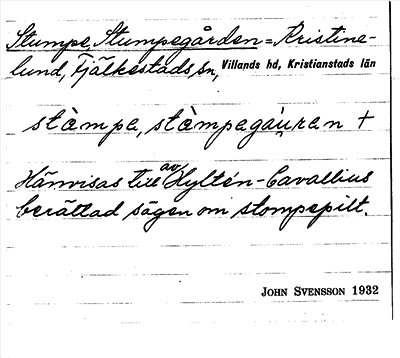 Stumpe, Stumpegården = Kristine-
lund, Fjälkestads sn, Villands hd, Kristianstads län
stàmpa, stàmpagàụran +
Hänvisas till av Hyltén-Cavallius
berättad sägen om stompepilt.
JOHN SVENSSON 1932